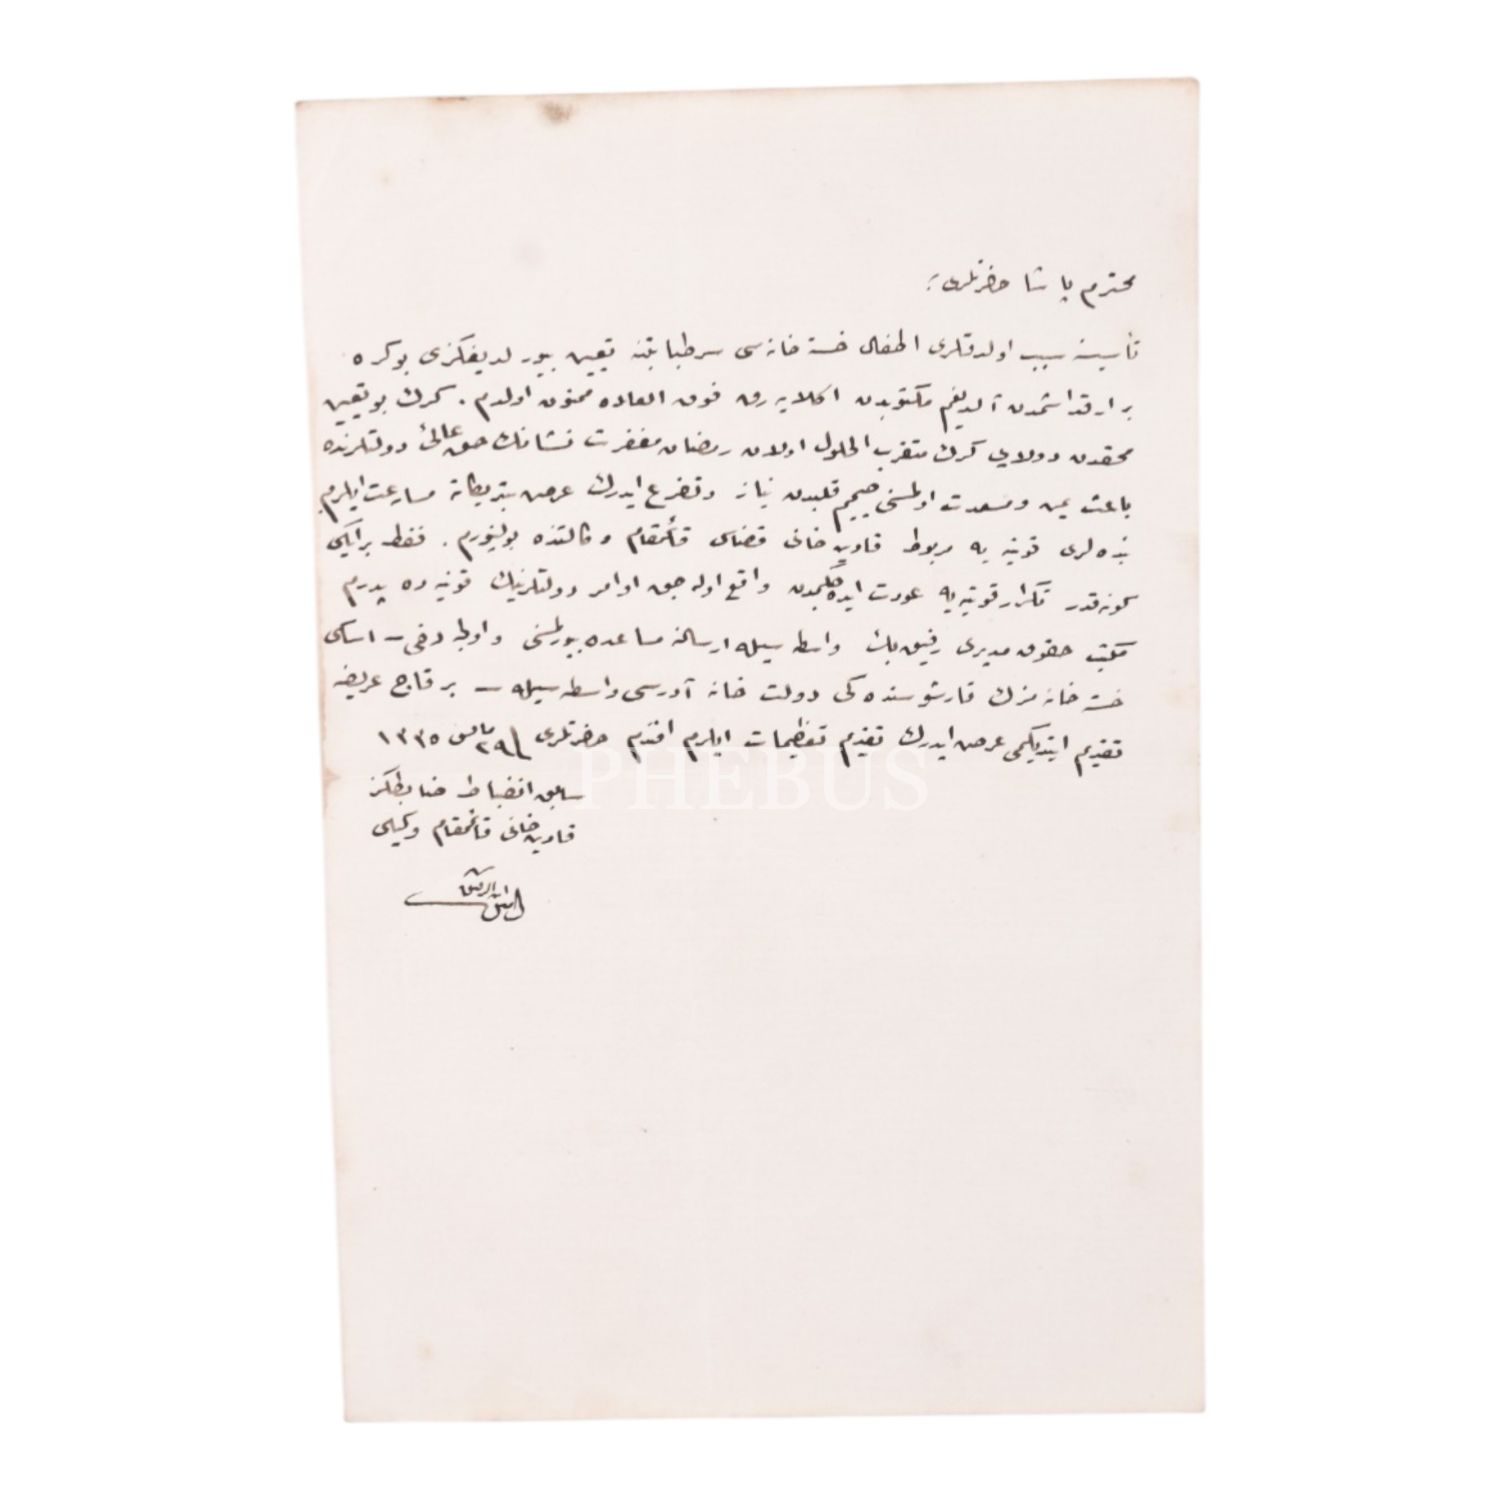 محترم پاشا حضرتلری؛
تأسیسنه سبب اولدقلری اطفال خسته خانه سی سرطبابتنه تعیین بیورلدیغکزی بو کره
بر ارقداشمدن آلدیغم مکتوبدن اکلایه رق فوق العاده ممنون اولدم. کرك بو تعیین
محقدن دولایی کرك متقرب الحلول اولان رمضان مغفرت نشانك حق عالئ دولتلرنده
باعث یمن و مسعدت اولمسنی صمیم قلبدن نیاز و تضرع ایدرك عرض تبریکاته مسارعت ایلرم.
بنده لری قونیه یه مربوط قادین خانی قضاسی قائمقام وکالتنده بولنیورم. فقط بر ایکی
کونه قدر تکرار قونیه یه عودت ایده جکمدن واقع اوله جق اوامر دولتلرینك قونیه ده پدرم
مکتب حقوق مدیری رفیق بك واسطه سیله ارسالنه مساعده بیورلمسنی و اولجه دخی – اسکی
خسته خانه مزك قارشوسنده کی دولت خانه آدرسی واسطه سیله – بر قاچ عریضه
تقدیم ایتدیکمی عرض ایدرك تقدیم تعظیمات ایلرم افندم حضرتلری ٢٩ مایس ١٣٣٥
سابق انضباط ضابطکز
قادین خانی قائمقام وکیلی